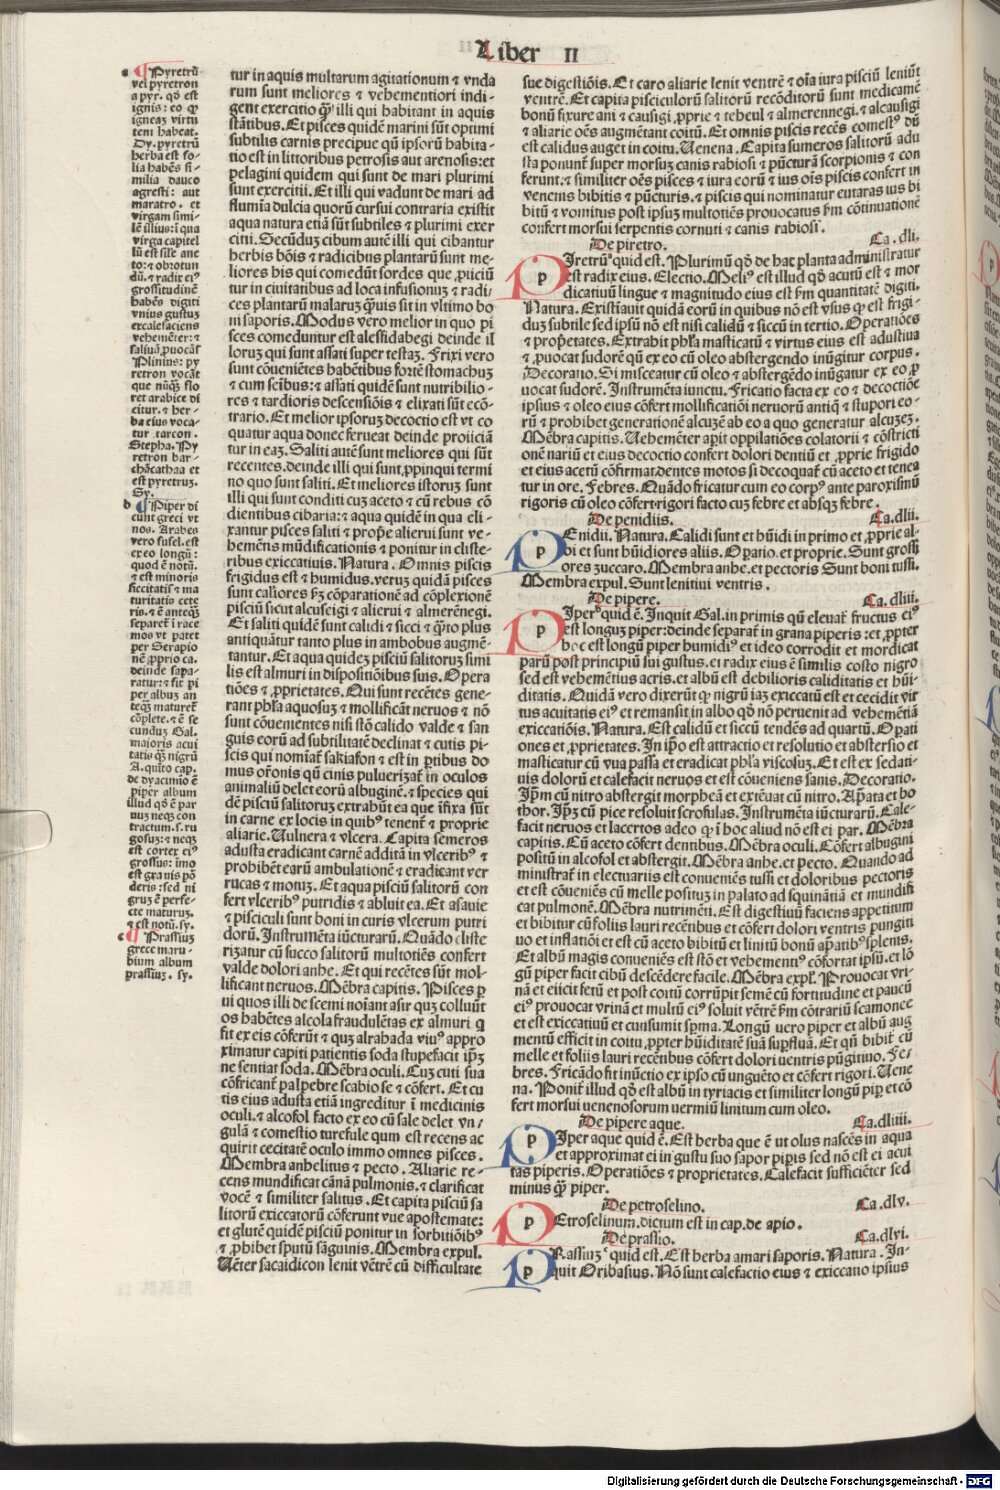 Liber II
a ¶ Pyretrū
vel pyretron
a pyr. qđ est
ignis: eo ꝙ
igneaʒ virtu
tem habeat.
Dy. pyretrū
herba est fo-
lia habēs si-
milia dauco
agresti: aut
maratro. et
virgam simi-
lē illius: ī qua
virga capitel
lū est sile ane
to: ⁊ obrotun
dū. ⁊ radix eiꝰ
grossitudinē
habēs digiti
vnius gustus
excalefaciens
vehemēter: ⁊
saliuā ꝓuocās
Plinius: py
retron vocāt
que nūqʒ flo
ret arabice di
citur. ⁊ her-
ba eius voca-
tur tarcon.
Stepha. Py
retron bar-
chācathaa et
est pyretrus.
Sy.
b ¶ Piper di
cunt greci vt
nos. Arabes
vero fusel. est
ex eo longū:
quod ē notū.
⁊ est minoris
siccitatis ⁊ ma
turitatis cete
ris. ⁊ ē anteqʒ
separet ī race
mos vt patet
per Serapio
nē ꝓprio ca.
deinde sapa-
ratur: ⁊ fit pi
per albuʒ an
teqʒ maturet
cōplete. ⁊ ē se
cunduʒ Gal.
maioris acui
tatis qʒ nigrū
A. quito cap.
de dyacimio ē
piper album
illud qđ ē par
uuʒ neqʒ con
tractum. s. ru
gosuʒ: ⁊ neqʒ
est cortex eiꝰ
grossus: imo
est grauis pō
deris: sed ni
gruʒ ē perfe-
cte maturuʒ.
⁊ est notū. sy.
c ¶ Prassiuʒ
grece maru-
bium album
prassiuʒ. sy.
tur in aquis multarum agitationum ⁊ vnda
rum sunt meliores ⁊ vehementiori indi-
gent exercitio qʒ illi qui habitant in aquis
stātibus. Et pisces quidē marini sūt optimi
subtilis carnis precipue qū ipsorū habita-
tio est in littoribus petrosis aut arenosis: et
pelagini quidem qui sunt de mari plurimi
sunt exercitii. Et illi qui vadunt de mari ad
flumīa dulcia quorū cursui contraria existit
aqua natura etiā sūt subtiles ⁊ plurimi exer
citii. Secūduʒ cibum autē illi qui cibantur
herbis bōis ⁊ radicibus plantarū sunt me-
liores his qui comedūt sordes que ꝓiiciū
tur in ciuitatibus ad loca infusionuʒ ⁊ radi
ces plantarū malaruʒ qʒuis sit in vltimo bo
ni saporis. Modus vero melior in quo pi
sces comeduntur est alesfidabegi deinde il
loruʒ qui sunt assati super testaʒ. Frixi vero
sunt cōueniētes habētibus fortē stomachuʒ
⁊ cum seibus: ⁊ assati quidē sunt nutribilio-
res ⁊ tardioris descensiōis ⁊ elixati sūt ecō-
trario. Et melior ipsoruʒ decoctio est vt co
quatur aqua donec ferueat deinde proiiciā
tur in eaʒ. Saliti autē sunt meliores qui sūt
recentes. deinde illi qui sunt ꝓpinqui termi
no quo sunt saliti. Et meliores istoruʒ sunt
illi qui sunt conditi cuʒ aceto ⁊ cū rebus cō
dientibus cibaria: ⁊ aqua quidē in qua eli-
xantur pisces saliti ⁊ prope alierui sunt ve-
hemētis mūdificationis ⁊ ponitur in cliste-
ribus exiccatiuis. Natura. Omnis piscis
frigidus est ⁊ humidus. veruʒ quidā pisces
sunt caliores fʒ cōparationē ad cōplexionē
pisciū sicut alcuseigi ⁊ alierui ⁊ almerēnegi.
Et saliti quidē sunt calidi ⁊ sicci ⁊ qʒto plus
antiquātur tanto plus in ambobus augmē-
tantur. Et aqua quideʒ pisciū salitoruʒ simi
lis est almuri in dispositiōibus suis. Opera
tiōes ⁊ ꝓprietates. Qui sunt recētes gene-
rant phla aquosuʒ ⁊ mollificāt neruos ⁊ nō
sunt cōuenientes nisi stō calido valde ⁊ san
guis eorū ad subtilitatē declinat ⁊ cutis pi-
scis qui nomīat sakiafon ⁊ est in ꝑtibus do
mus oronis qū cinis pulueriʒat in oculos
animaliū delet eorū albuginē. ⁊ species qui
dē pisciū salitoruʒ extrahūt ea que īfixa sūt
in carne ex locis in quibꝰ tenent ⁊ proprie
aliarie. Vulnera ⁊ vlcera. Capita semeros
adusta eradicant carnē additā in vlceribꝰ ⁊
prohibēt earū ambulationē ⁊ eradicant ver
rucas ⁊ motuʒ. Et aqua pisciū salitorū con
fert vlceribꝰ putridis ⁊ abluit ea. Et asauie
⁊ pisciculi sunt boni in curis vlcerum putri
dorū. Instrumēta iūcturarū. Quādo cliste
riʒatur cū succo salitorū multotiēs confert
valde dolori anhe. Et qui recētes sūt mol-
lificant neruos. Mēbra capitis. Pisces ꝑ
ui quos illi de scemi noiant asir quʒ colluūt
os habētes alcola fraudulētas ex almuri q
fit ex eis cōferūt ⁊ quʒ alrabada viuꝰ appro
ximatur capiti patientis soda stupefacit ipʒ
ne sentiat soda. Mēbra oculi. Cuʒ cuti sua
cōfricant palpebre scabiose ⁊ cōfert. Et cu
tis eius adusta etiā ingreditur ī medicinis
oculi. ⁊ alcofol facto ex eo cū sale delet vn-
gulā ⁊ comestio turefule qum est recens ac
quirit cecitatē oculo immo omnes pisces.
Membra anhelitus ⁊ pecto. Aliarie re-
cens mundificat cānā pulmonis. ⁊ clarificat
vocē ⁊ similiter salitus. Et capita pisciū sa
litorū exiccatorū cōferunt vue apostemate:
et glutē quidē pisciū ponitur in sorbitiōibꝰ
⁊ ꝓhibet sputū sāguinis. Membra expul.
Uēter sacaidicon lenit vētrē cū difficultate
sue digestiōis. Et caro aliarie lenit ventrē ⁊ oīa iura pisciū leniūt
ventrē. Et capita pisciculorū salitorū recōditorū sunt medicamē
bonū fixure ani ⁊ causigi ꝓprie ⁊ tebeul ⁊ almerennegi. ⁊ alcausigi
⁊ aliarie oēs augmētant coitū. Et omnis piscis recēs comestꝰ dū
est calidus auget in coitu. Uenena. Capita sumeros salitorū adu
sta ponunt super morsuʒ canis rabiosi ⁊ pūcturā scorpionis ⁊ con
ferunt. ⁊ similiter oēs pisces ⁊ iura eorū ⁊ ius oīs piscis confert in
venenis bibitis ⁊ pūcturis. ⁊ piscis qui nominatur eutaras ius bi
bitū ⁊ vomitus post ipsuʒ multotiēs prouocatus fm cōtinuationē
confert morsui serpentis cornuti ⁊ canis rabiosi.
De piretro. Ca. dli.
PIretrū quid est. Plurimū qđ de hac planta administratur
est radix eius. Electio. Meliꝰ est illud qđ acutū est ⁊ mor
dicatiuū lingue ⁊ magnitudo eius est fm quantitatē digiti.
Natura. Existiauit quidā eorū in quibus nō est vsus ꝙ est frigi-
duʒ subtile sed ipsū nō est nisi calidū ⁊ siccū in tertio. Operatiōes
⁊ propetates. Extrabit phla masticatū ⁊ virtus eius est adustiua
⁊ ꝓuocat sudorē qū ex eo cū oleo abstergendo inūgitur corpus.
Decoratio. Si misceatur cū oleo ⁊ abstergēdo inūgatur ex eo ꝓ
uocat sudorē. Instrumēta iunctu. Fricatio facta ex eo ⁊ decoctiōe
ipsius ⁊ oleo eius cōfert mollificatiōi neruorū antiq ⁊ stupori eo-
rū ⁊ prohibet generationē alcuʒeʒ ab eo a quo generatur alcuʒeʒ.
Mēbra capitis. Uehemēter apit oppilatiōes colatorii ⁊ cōstricti
onē nariū et eius decoctio confert dolori dentiū et ꝓprie frigido
et eius acetū cōfirmat dentes motos si decoquat cū aceto et tenea
tur in ore. Febres. Quādo fricatur cum eo corpꝰ ante paroxismū
rigoris cū oleo cōfert rigori facto cuʒ febre et absqʒ febre.
De penidiis. Ca. dlii.
PEnidii. Natura. Calidi sunt et hūidi in primo et ꝓprie al-
bi et sunt hūidiores aliis. Opatio. et proprie. Sunt grossi
ores ʒuccaro. Membra anhe. et pectoris Sunt boni tussi.
Membra expul. Sunt lenitiui ventris.
De pipere. Ca. dliii.
PIper quid ē. Inquit Gal. in primis qū eleuat fructus eiꝰ
est longuʒ piper: deinde separat in grana piperis: et ꝓpter
hoc est longū piper humidiꝰ et ideo corrodit et mordicat
parū post principiū sui gustus. et radix eius ē similis costo nigro
sed est vehemētius acris. et albū est debilioris caliditatis et hūi-
ditatis. Quidā vero dixerūt ꝙ nigrū iaʒ exiccatū est et cecidit vir
tus acuitatis eiꝰ et remansit in albo qđ nō peruenit ad vehemētiā
exiccatiōis. Natura. Est calidū et siccū tendēs ad quartū. Opati
ones et ꝓprietates. In ipō est attractio et resolutio et abstersio et
masticatur cū vua passa et eradicat phla viscosuʒ. Et est ex sedati-
uis dolorū et calefacit neruos et est cōueniens sanis. Decoratio.
Ipm cū nitro abstergit morpheā et extēuat cū nitro. Apata et bo
thor. Ipʒ cū pice resoluit scrofulas. Instrumēta iūcturarū. Cale-
facit neruos et lacertos adeo ꝙ ī hoc aliud nō est ei par. Mēbra
capitis. Cū aceto cōfert dentibus. Mēbra oculi. Cōfert albugini
positū in alcofol et abstergit. Mēbra anhe. et pecto. Quando ad
ministrat in electuariis est conueniēs tussi et doloribus pectoris
et est cōueniēs cū melle positus in palato ad squinātiā et mundifi
cat pulmonē. Mēbra nutrimēti. Est digestiuū faciens appetitum
et bibitur cū foliis lauri recētibus et cōfert dolori ventris pungiti
uo et inflatiōi et est cū aceto bibitū et linitū bonū apatibꝰ splenis.
Et albū magis conueniēs est stō et vehementiꝰ cōfortat ipsū. et lō
gū piper facit cibū descēdere facile. Mēbra expl. Prouocat vri-
nā et eiicit fetū et post coitū corrūpit semē cū fortitudine et paucū
eiꝰ prouocat vrinā et multū eiꝰ soluit vētrē fm cōtrariū scamonee
et est exiccatiuū et cunsumit spma. Longū uero piper et albū aug
mentū efficit in coitu ꝓpter hūiditatē suā supfluā. Et qū bibit cū
melle et foliis lauri recētibus cōfert dolori uentris pūgitiuo. Fe-
bres. Fricādo fit inūctio ex ipso cū unguēto et cōfert rigori. Uene
na. Ponit illud qđ est albū in tyriacis et similiter longū pip et cō
fert morsui uenenosorum uermiū linitum cum oleo.
De pipere aque. Ca. dliiii.
PIper aque quid ē. Est herba que ē ut olus nascēs in aqua
et approximat ei in gustu suo sapor pipis sed nō est ei acui
tas piperis. Operatiōes ⁊ proprietates. Calefacit sufficiēter sed
minus qʒ piper.
De petroselino. Ca. dlv.
PEtroselinum. dictum est in cap. de apio.
De prassio. Ca. dlvi.
PRassiuʒ quid est. Est herba amari saporis. Natura. In-
quit Oribasius. Nō sunt calefactio eius ⁊ exiccatio ipsius
Digitalisierung gefördert durch die Deutsche Forschungsgemeinschaft - DFG